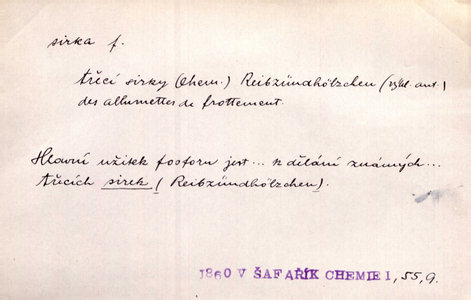 sirka f.
třecí sirky (Chem.) Reibzündhölzchen (výkl. aut.)
des allumettes de frottement.
Hlavní užitek fosforu jest... k dělání známých...
třecích sirek (Reibzündhölzchen).
1860 V ŠAFAŘÍK CHEMIE I, 55, 9.